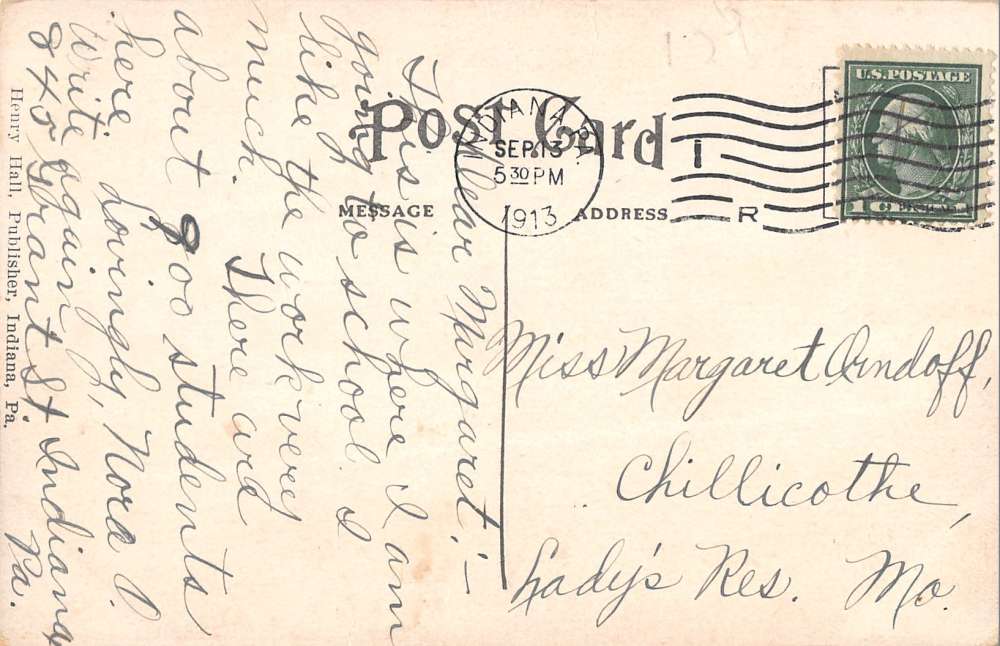 Post Card
MESSAGE
ADDRESS
INDIANA, PA.
SEP 13
5 30 PM
1913
I
R
U.S. POSTAGE
1
Dear Margaret:—
This is where I am
going to school. I
like the work very
much. There are
about 900 students
here. Lovingly, Nora P.
Write again
840 Grant St Indiana
Pa.
Miss Margaret Arndoff,
Chillicothe,
Lady's Res. Mo.
Henry Hall, Publisher, Indiana, Pa.